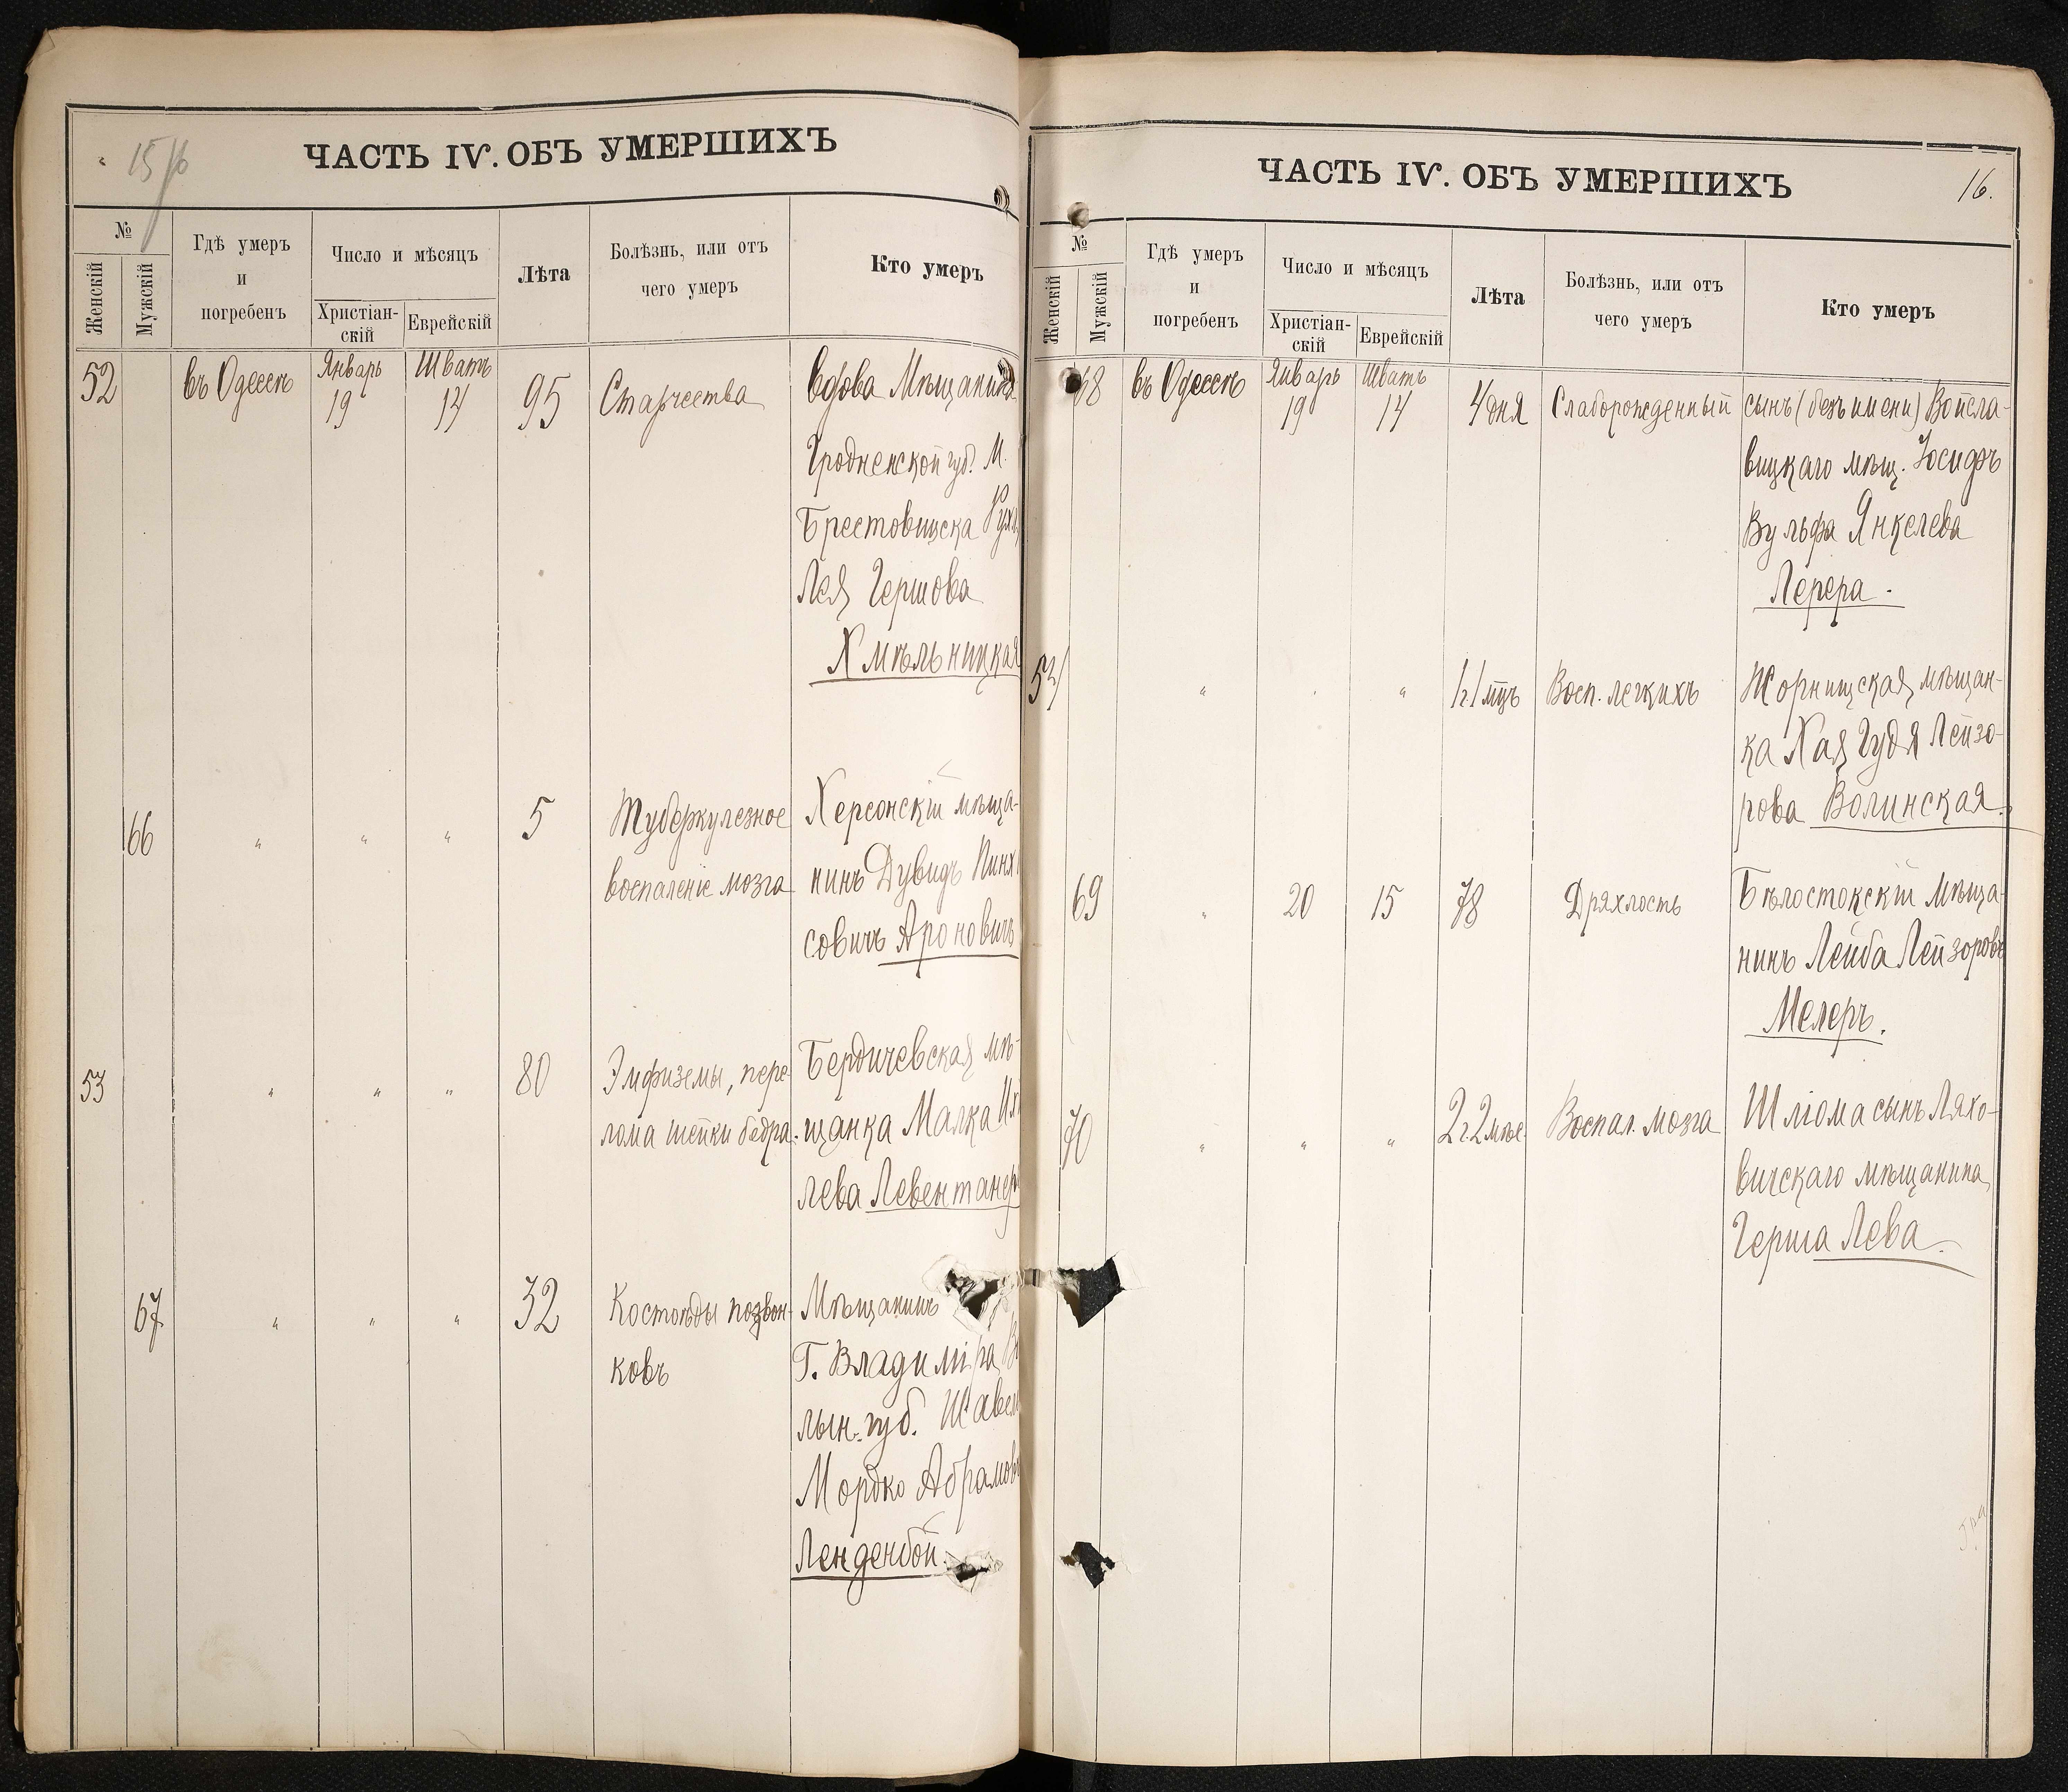 15 об
ЧАСТЬ IV. ОБЪ УМЕРШИХЪ
№
Женскій
Мужскій
Гдѣ умеръ
и
погребенъ
Число и мѣсяцъ
Христіан-
скій
Еврейскій
Лѣта
Болѣзнь, или отъ
чего умеръ
Кто умеръ
52
въ Одессѣ
Январь
19
Шватъ
14
95
Старчества
вдова Мѣщанина
Гродненской губ. М.
Брестовицка
Лея Гершова
Хмѣльницкая
66
"
"
"
5
Туберкулезное
воспаленіе мозга
Херсонскій мѣща-
нинъ Дувидъ Пинх
совичъ Ароновичъ
53
"
"
"
80
Эмфиземы, пере-
лома шейки бедра.
Бердичевская мѣ-
щанка Малка
лева Левентанер
67
"
"
"
32
Костоѣды позвон-
ковъ
Мѣщанинъ
Г. Владиміра
лын. губ.
Мордко Абрамов
Ленденбой.
ЧАСТЬ IV. ОБЪ УМЕРШИХЪ
16.
№
Женскій
Мужскій
Гдѣ умеръ
и
погребенъ
Число и мѣсяцъ
Христіан-
скій
Еврейскій
Лѣта
Болѣзнь, или отъ
чего умеръ
Кто умеръ
68
въ Одессѣ
Январь
19
Шватъ
14
4 дня
Слаборожденный
сынъ (безъ имени) Войсла-
вицкаго мѣщ. Іосифъ
Вульфа Янкелева
Лерера.
54
"
"
"
1 г. 1 мцъ
Восп. легкихъ
Жорнищская мѣщан-
ка Хая Гудя Лейзо-
рова Волинская.
69
"
20
15
78
Дряхлость
Бѣлостокскій мѣща-
нинъ Лейба Лейзоровъ
Мелеръ.
70
"
"
"
2 г. 2 мѣс.
Воспал. мозга
Шліома сынъ Ляхо-
вичскаго мѣщанина
Герша Лева.